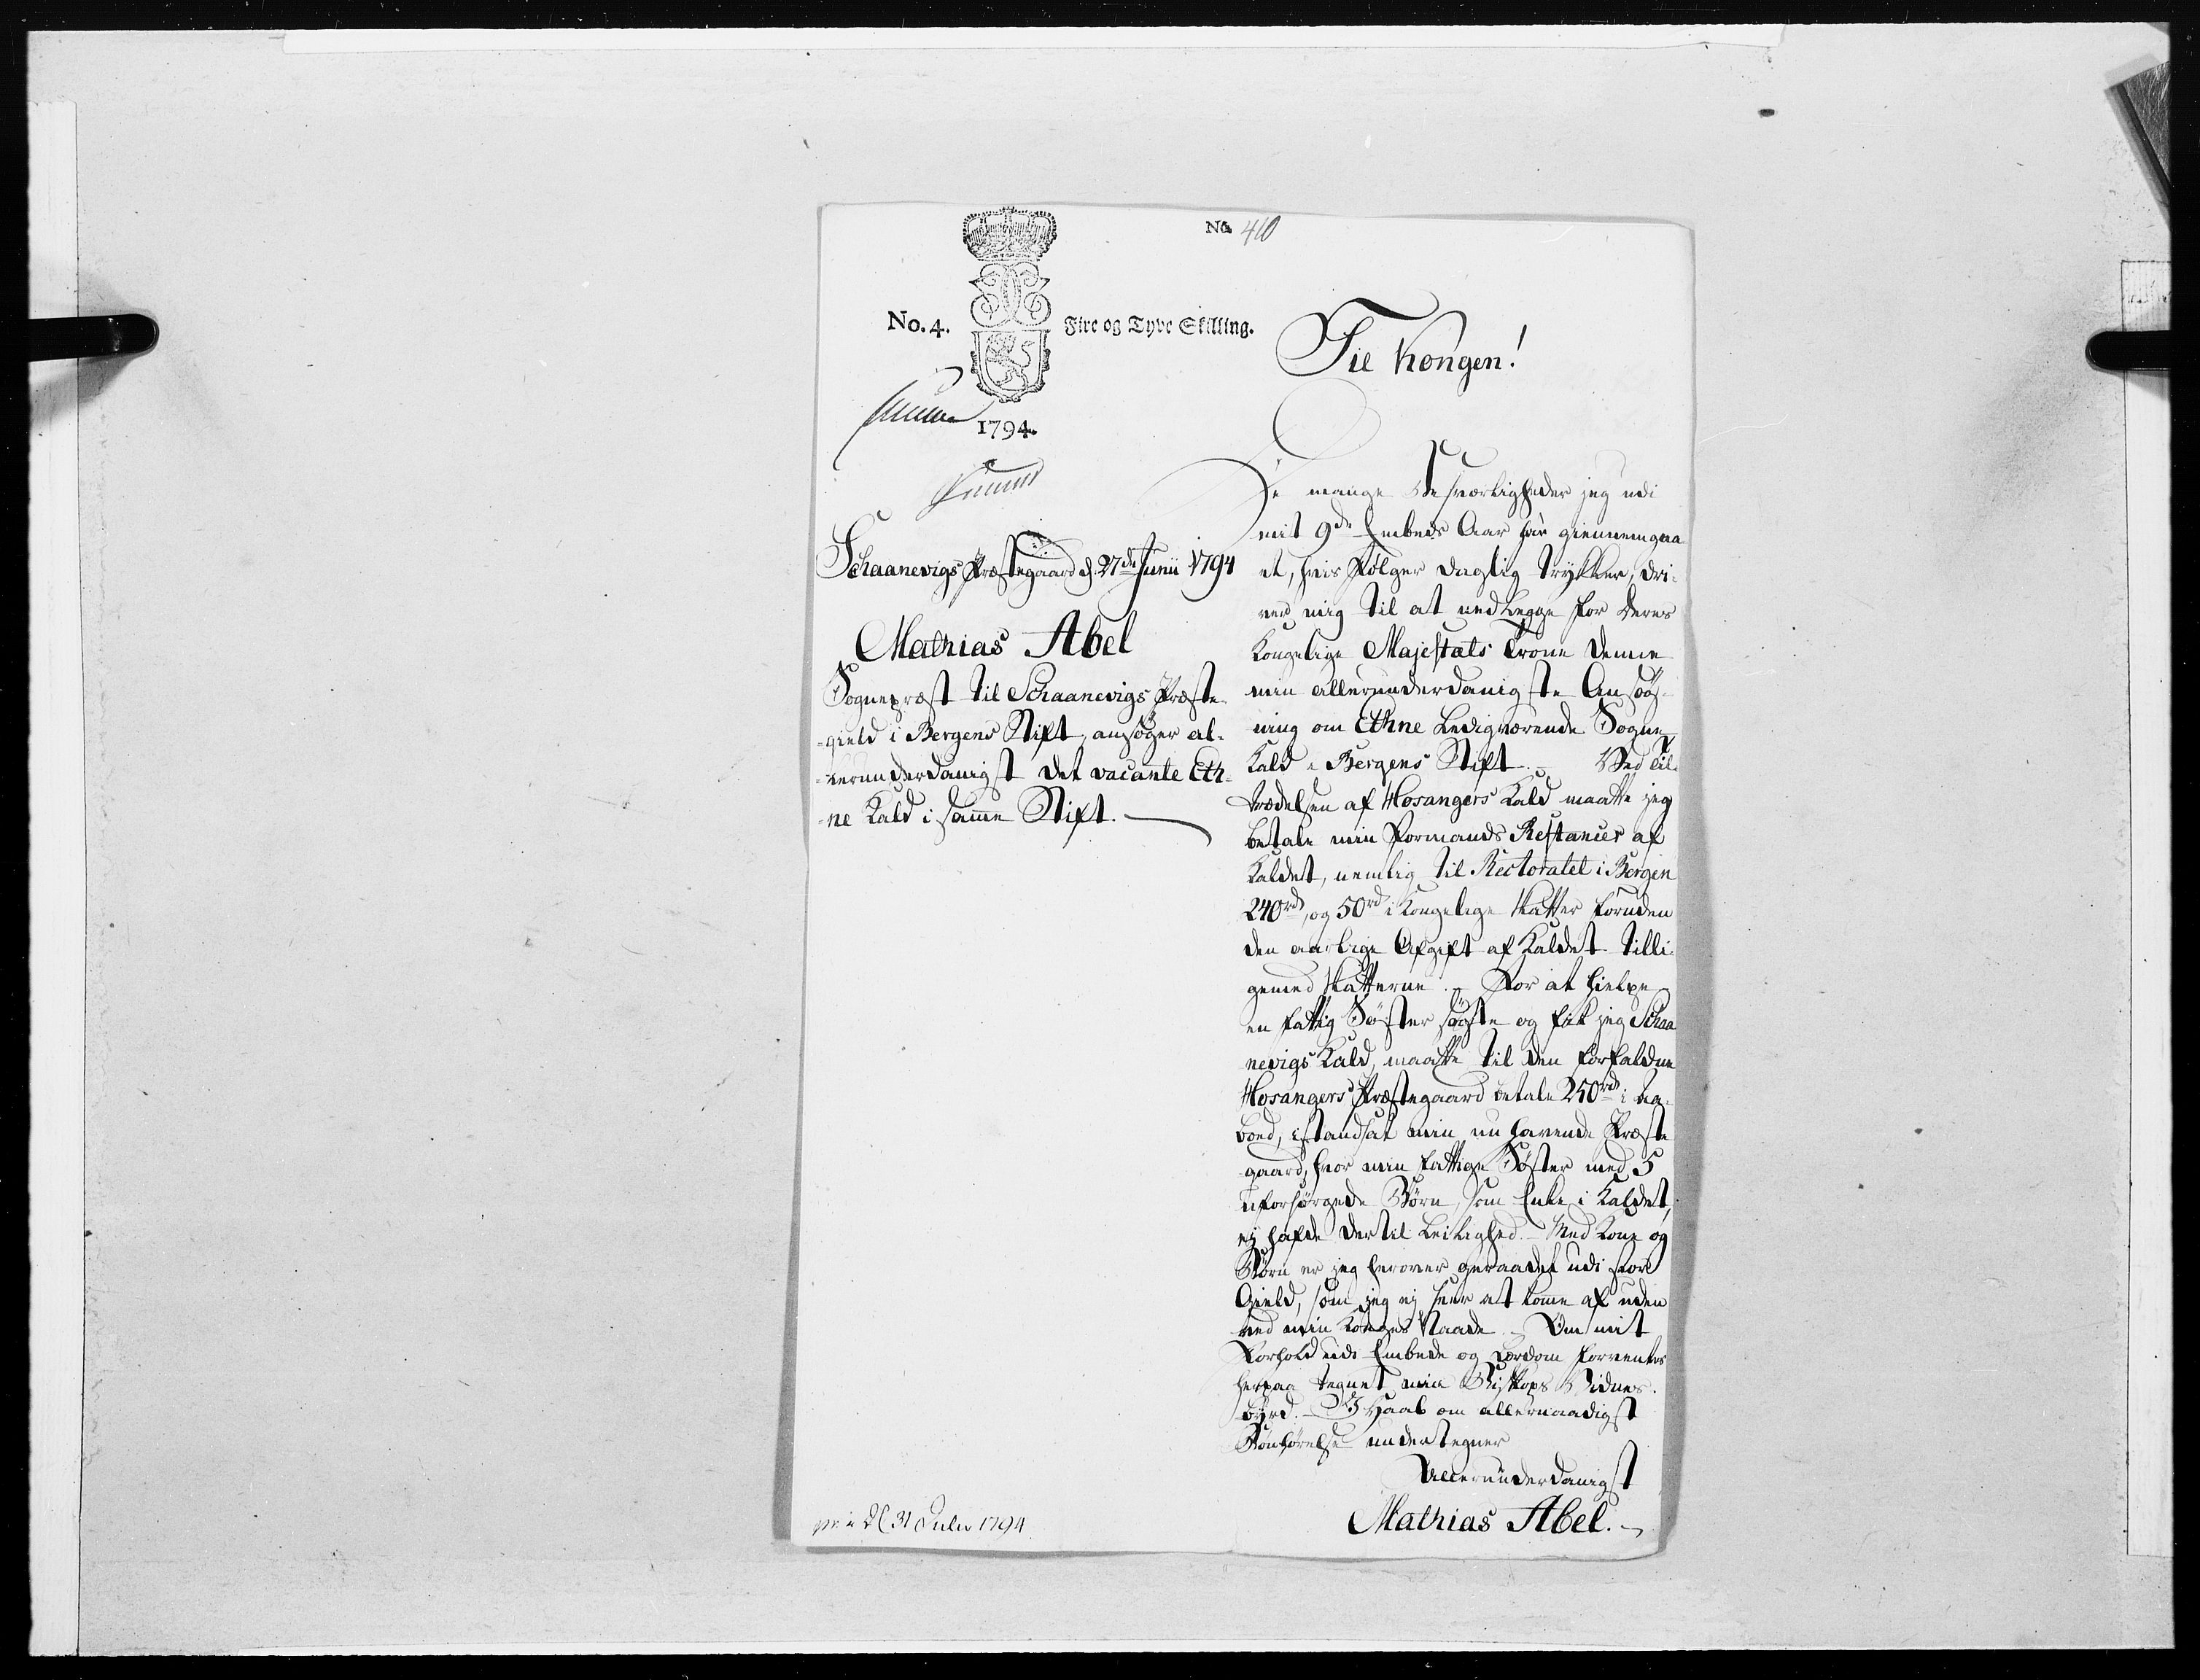 No. 410
No. 4.
Fire og Tyve Skilling.
1794.
Til Kongen!
Schaanevigs Præstegaard d. 27de Junii 1794
Mathias Abel
Sognepræst til Schaanevigs Præste-
-gield i Bergens Stift, ansøger al-
-lerunderdanigst det vacante Eth-
-ne Kald i samme Stift.
De mange Besværligheder jeg udi
mit 9de Embeds Aar har giennemgaa
et, hvis Følger dagelig trykker, dri-
ver mig til at nedlegge for Deres
Kongelige Majestæts Trone denne
min allerunderdanigste Ansøg-
ning om Ethne Ledigværende Sogne-
Kald i Bergens Stift. - Ved Til-
trædelsen af Hosangers Kald maatte jeg
betale min Formands Restancer af
Kaldet, nemlig til Rectoratet i Bergen
240rd, og 50rd i Kongelige Skatter foruden
den aarlige Afgift af Kaldet tilli-
gemed Skatterne. - For at hielpe
en fattig Søster søgte og fik jeg Schaa
nevigs Kald, maatte til den forfaldne
Hosangers Præstegaard betale 250rd i Aa-
boed, istandsat min nu havende Præste
gaard, hvor min fattige Søster med 5
uforsørgede Børn, som Enke i Kaldet,
ej hafde dertil Leilighed. - Med Kone og
Børn er jeg herover geraadet udi stor
Gield, som jeg ej seer at komme af uden
ved min Konges Naade. - Om mit
Forhold udi Embede og Lærdom forventes
herpaa tegnet min Biskops Vidnes-
byrd. - I Haab om allernaadigst
Bønhørelse undertegner
Allerunderdanigst
Mathias Abel.
d 31 Julii 1794